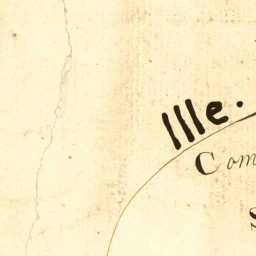 Ille.
Com